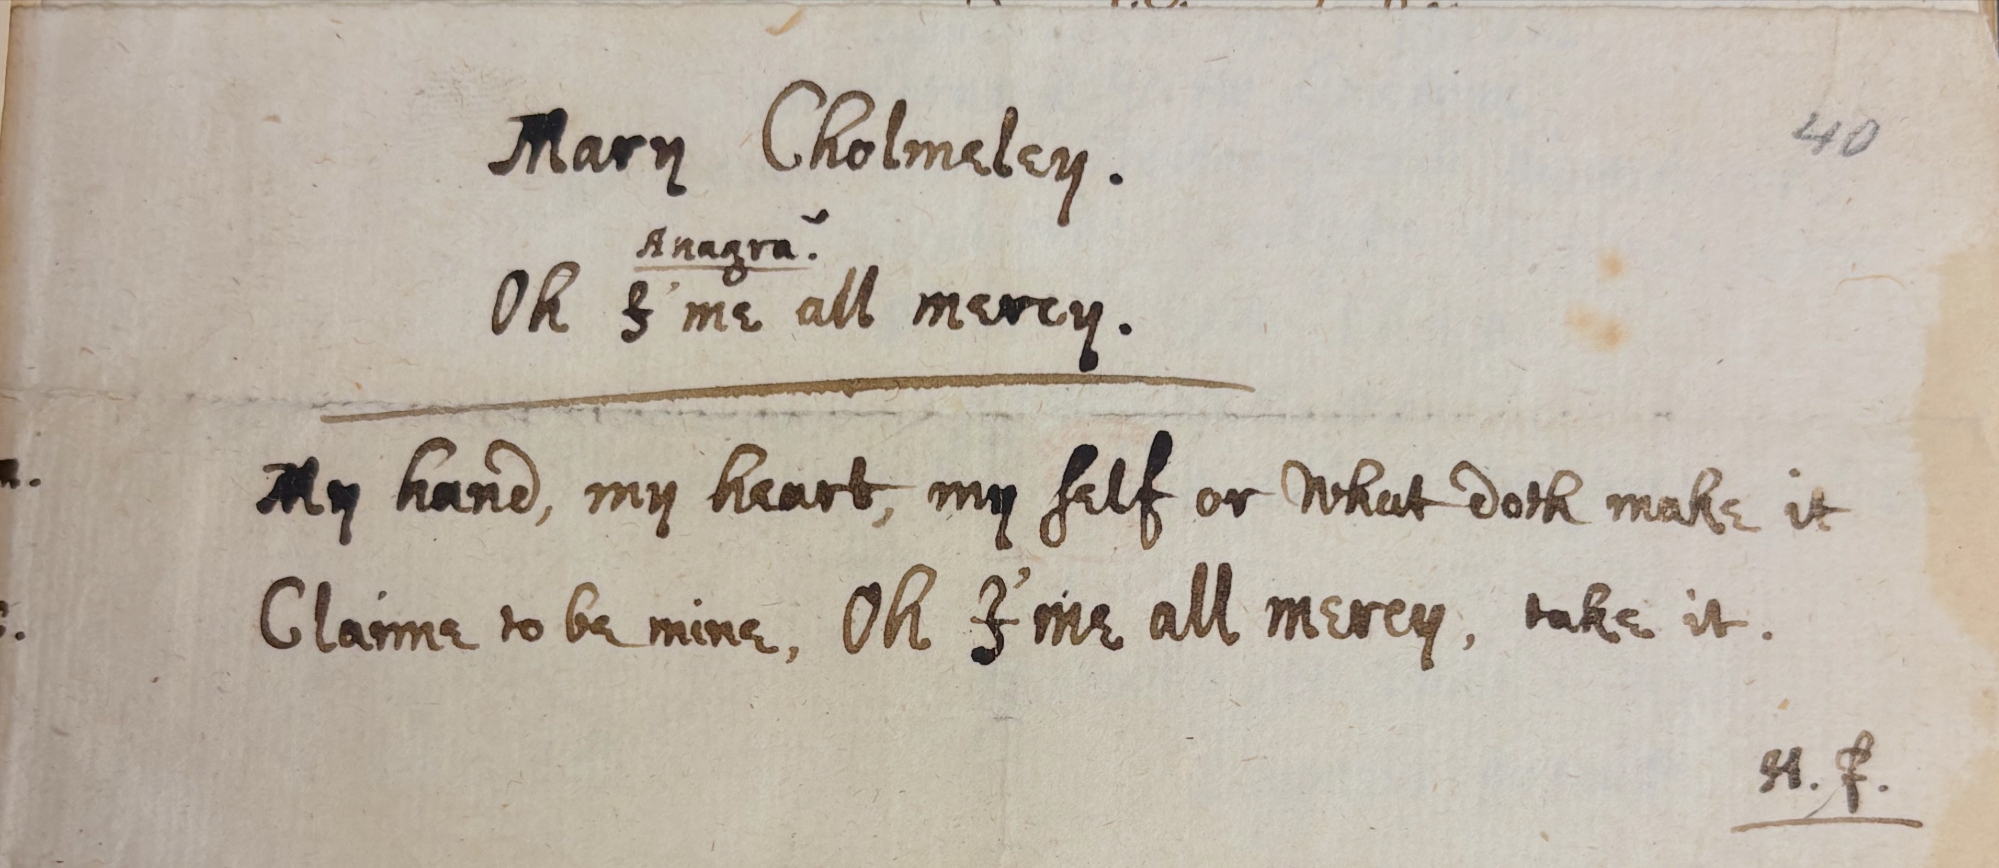 Mary Cholmeley.
40
Anagrã.
Oh I'me all mercy.
My hand, my heart, my self or What doth make it
Claime to be mine, Oh I'me all mercy, take it.
H. F.